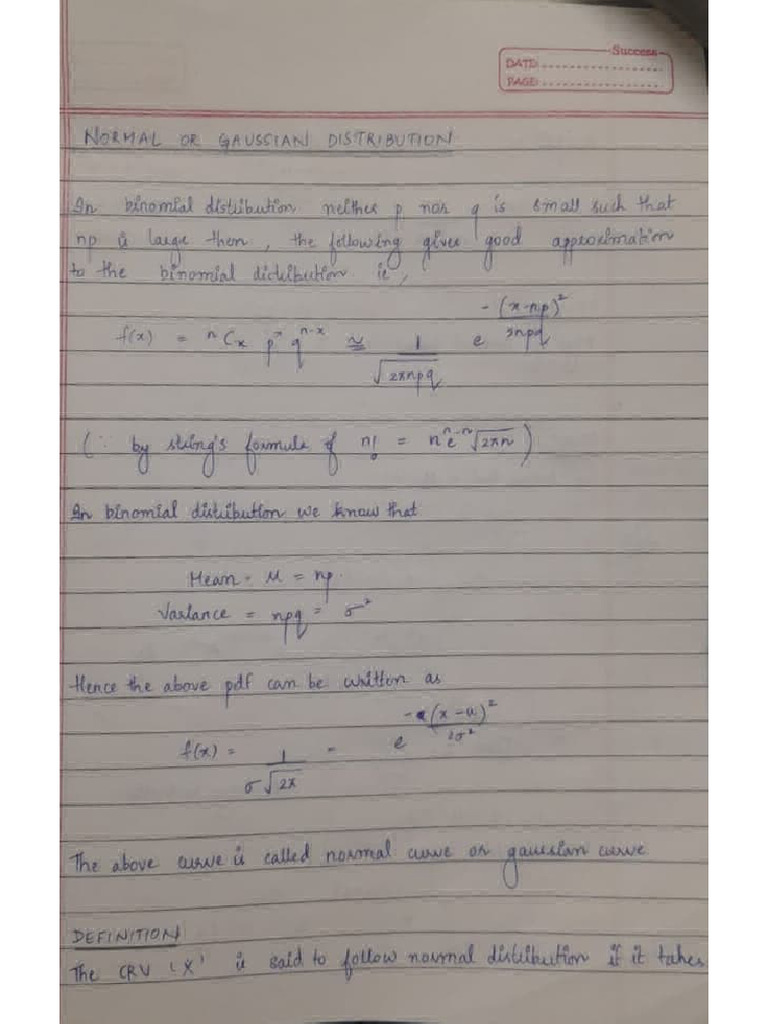 Success
DATE:
PAGE:
NORMAL OR GAUSSIAN DISTRIBUTION
In binomial distribution neither p nor q is small such that
np is large then, the following gives good approximation
to the binomial distribution ie,
f(x) = ⁿCₓ pˣ qⁿ⁻ˣ ≅ 1/√(2πnpq) e^(-(x-np)²/2npq)
(∵ by stling's formula of n! = nⁿe⁻ⁿ√(2πn))
In binomial distribution we know that
Mean = μ = np.
Variance = npq = σ²
Hence the above pdf can be written as
f(x) = 1/(σ√2π) - e^(-(x-μ)²/2σ²)
The above curve is called normal curve or gaussian curve
DEFINITION
The CRV 'X' is said to follow normal distribution if it takes